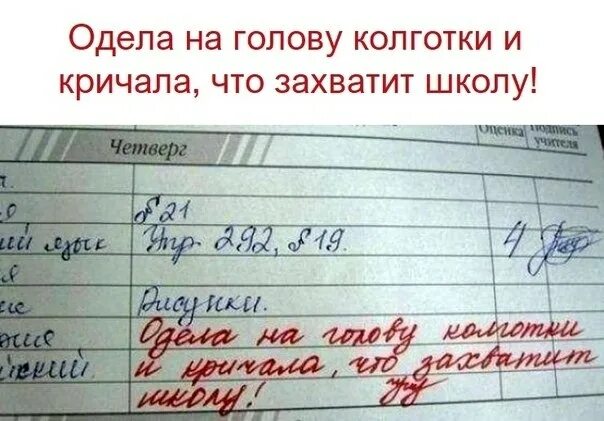 Одела на голову колготки и
кричала, что захватит школу!
Четверг
Оценка
Подпись
учителя
§21
ий язык Упр. 292, §19. 4
Рисунки.
Одела на голову колготки
и кричала, что захватит
школу!